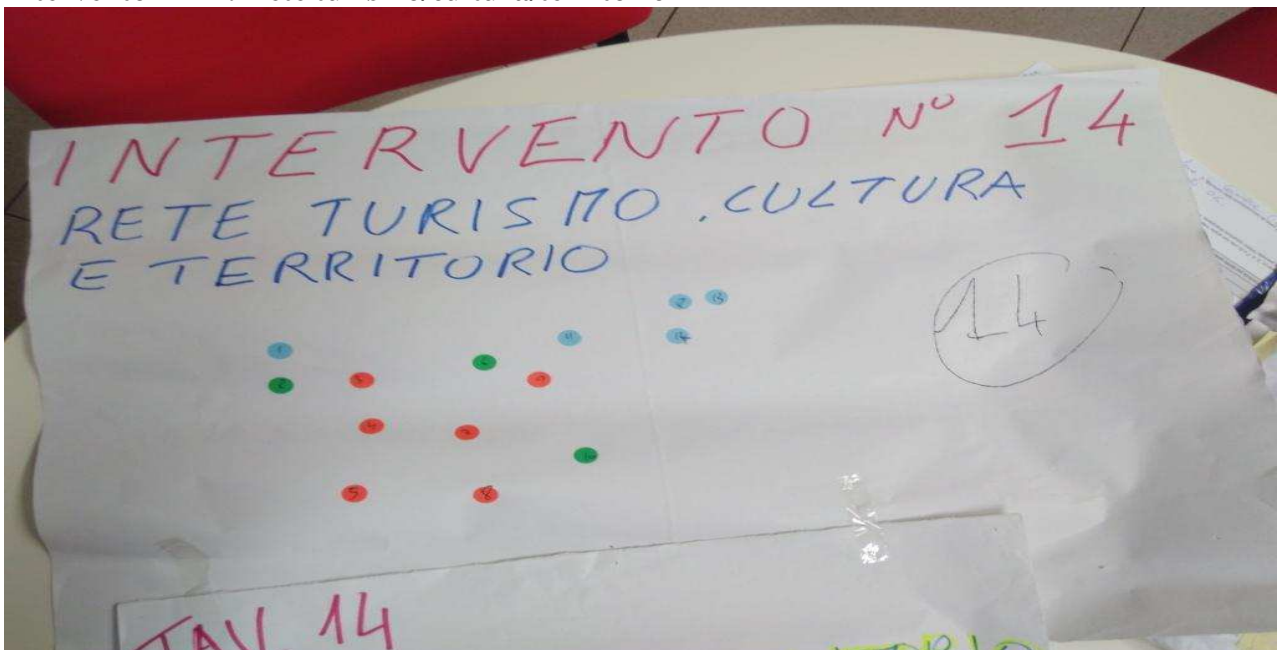 INTERVENTO N° 14
RETE TURISMO, CULTURA
E TERRITORIO
14
1
2
3
4
5
6
7
8
9
TAV 14